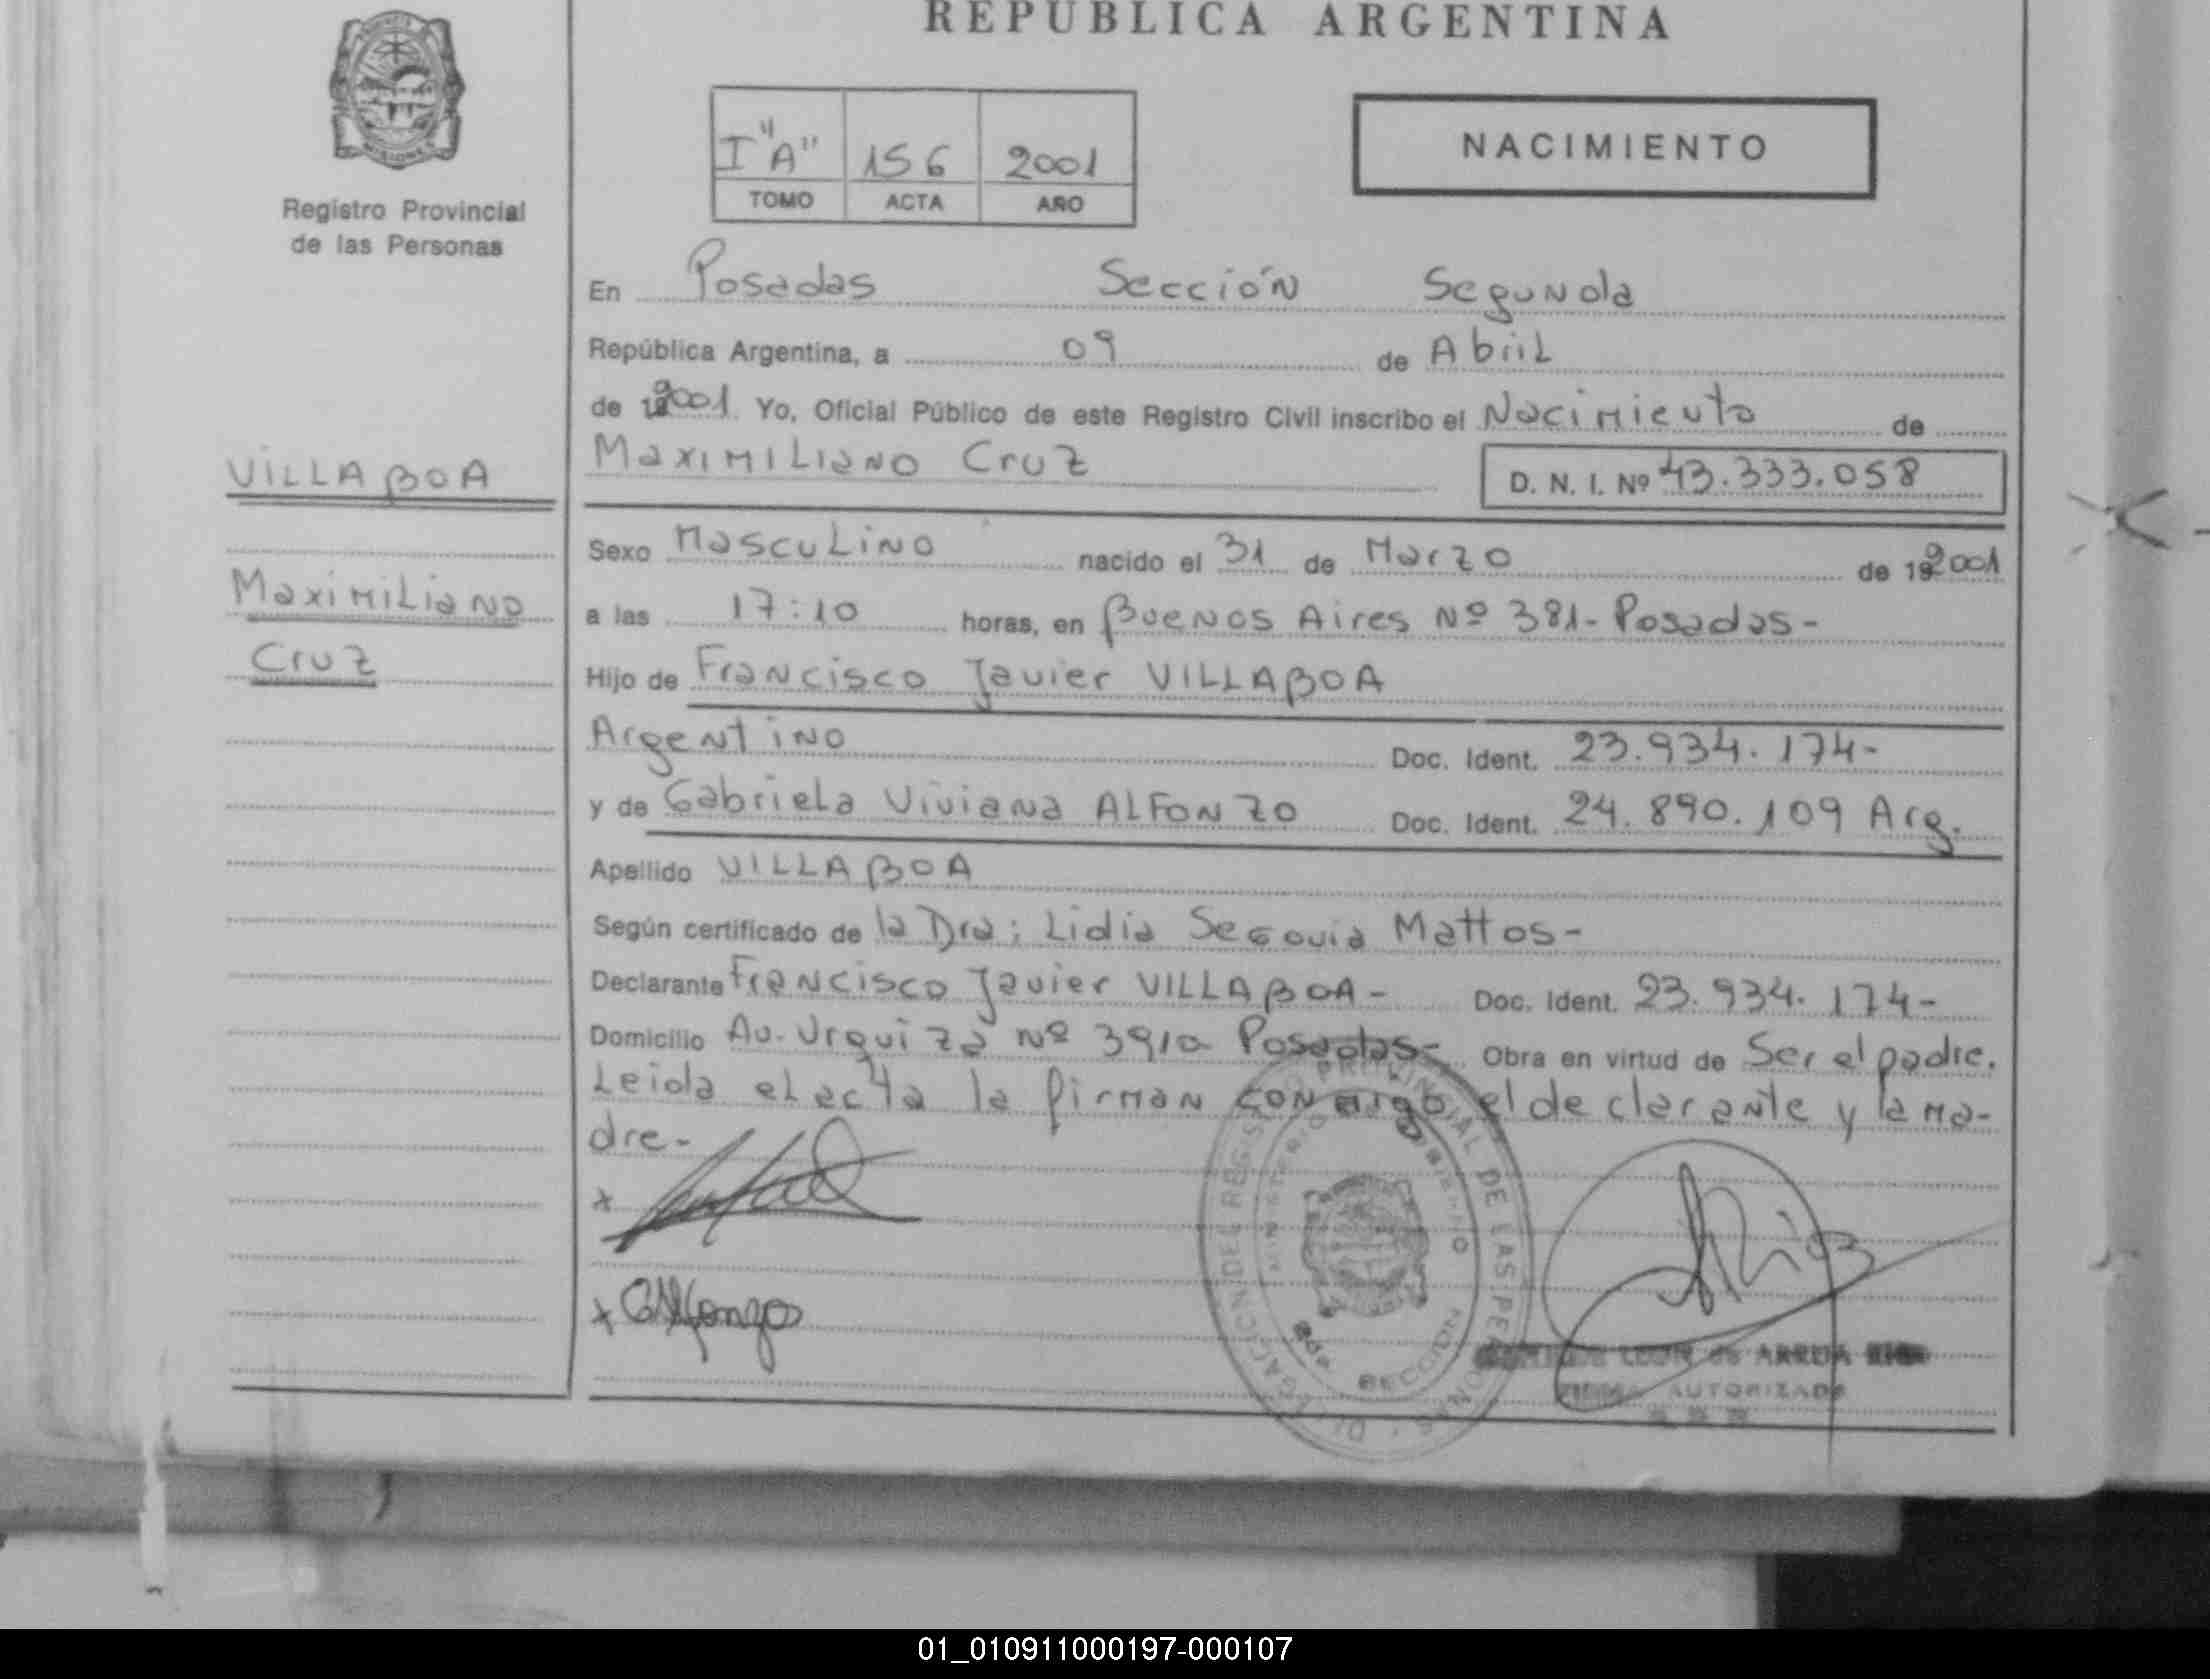 REPUBLICA ARGENTINA
MISIONES
Registro Provincial
de las Personas
I "A" 156 2001
TOMO ACTA AÑO
NACIMIENTO
VILLABOA
Maximiliano
Cruz
En Posadas Sección Segunda
República Argentina, a 09 de Abril
de 2001 Yo, Oficial Público de este Registro Civil inscribo el Nacimiento de
Maximiliano Cruz D. N. I. Nº 43.333.058
Sexo Masculino nacido el 31 de Marzo de 192001
a las 17:10 horas, en Buenos Aires Nº 381- Posadas-
Hijo de Francisco Javier VILLABOA
Argentino Doc. Ident. 23.934.174-
y de Gabriela Viviana ALFONZO Doc. Ident. 24.890.109 Arg.
Apellido VILLABOA
Según certificado de la Dra; Lidia Segovia Mattos-
Declarante Francisco Javier VILLABOA- Doc. Ident. 23.934.174-
Domicilio Av. Urquiza Nº 3910 Posadas- Obra en virtud de Ser el padre.
Leida el acta la firman conmigo el declarante y la ma-
dre-
x
x GAlfonzo
DELEGACION DEL REGISTRO PROVINCIAL DE LAS PERSONAS
MINISTERIO DE GOBIERNO
2da SECCION
LEON de ARRUA
FIRMA AUTORIZADA
01_010911000197-000107